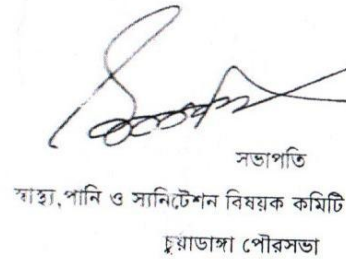 সভাপতি
স্বাস্থ্য, পানি ও স্যানিটেশন বিষয়ক কমিটি
চুয়াডাঙ্গা পৌরসভা